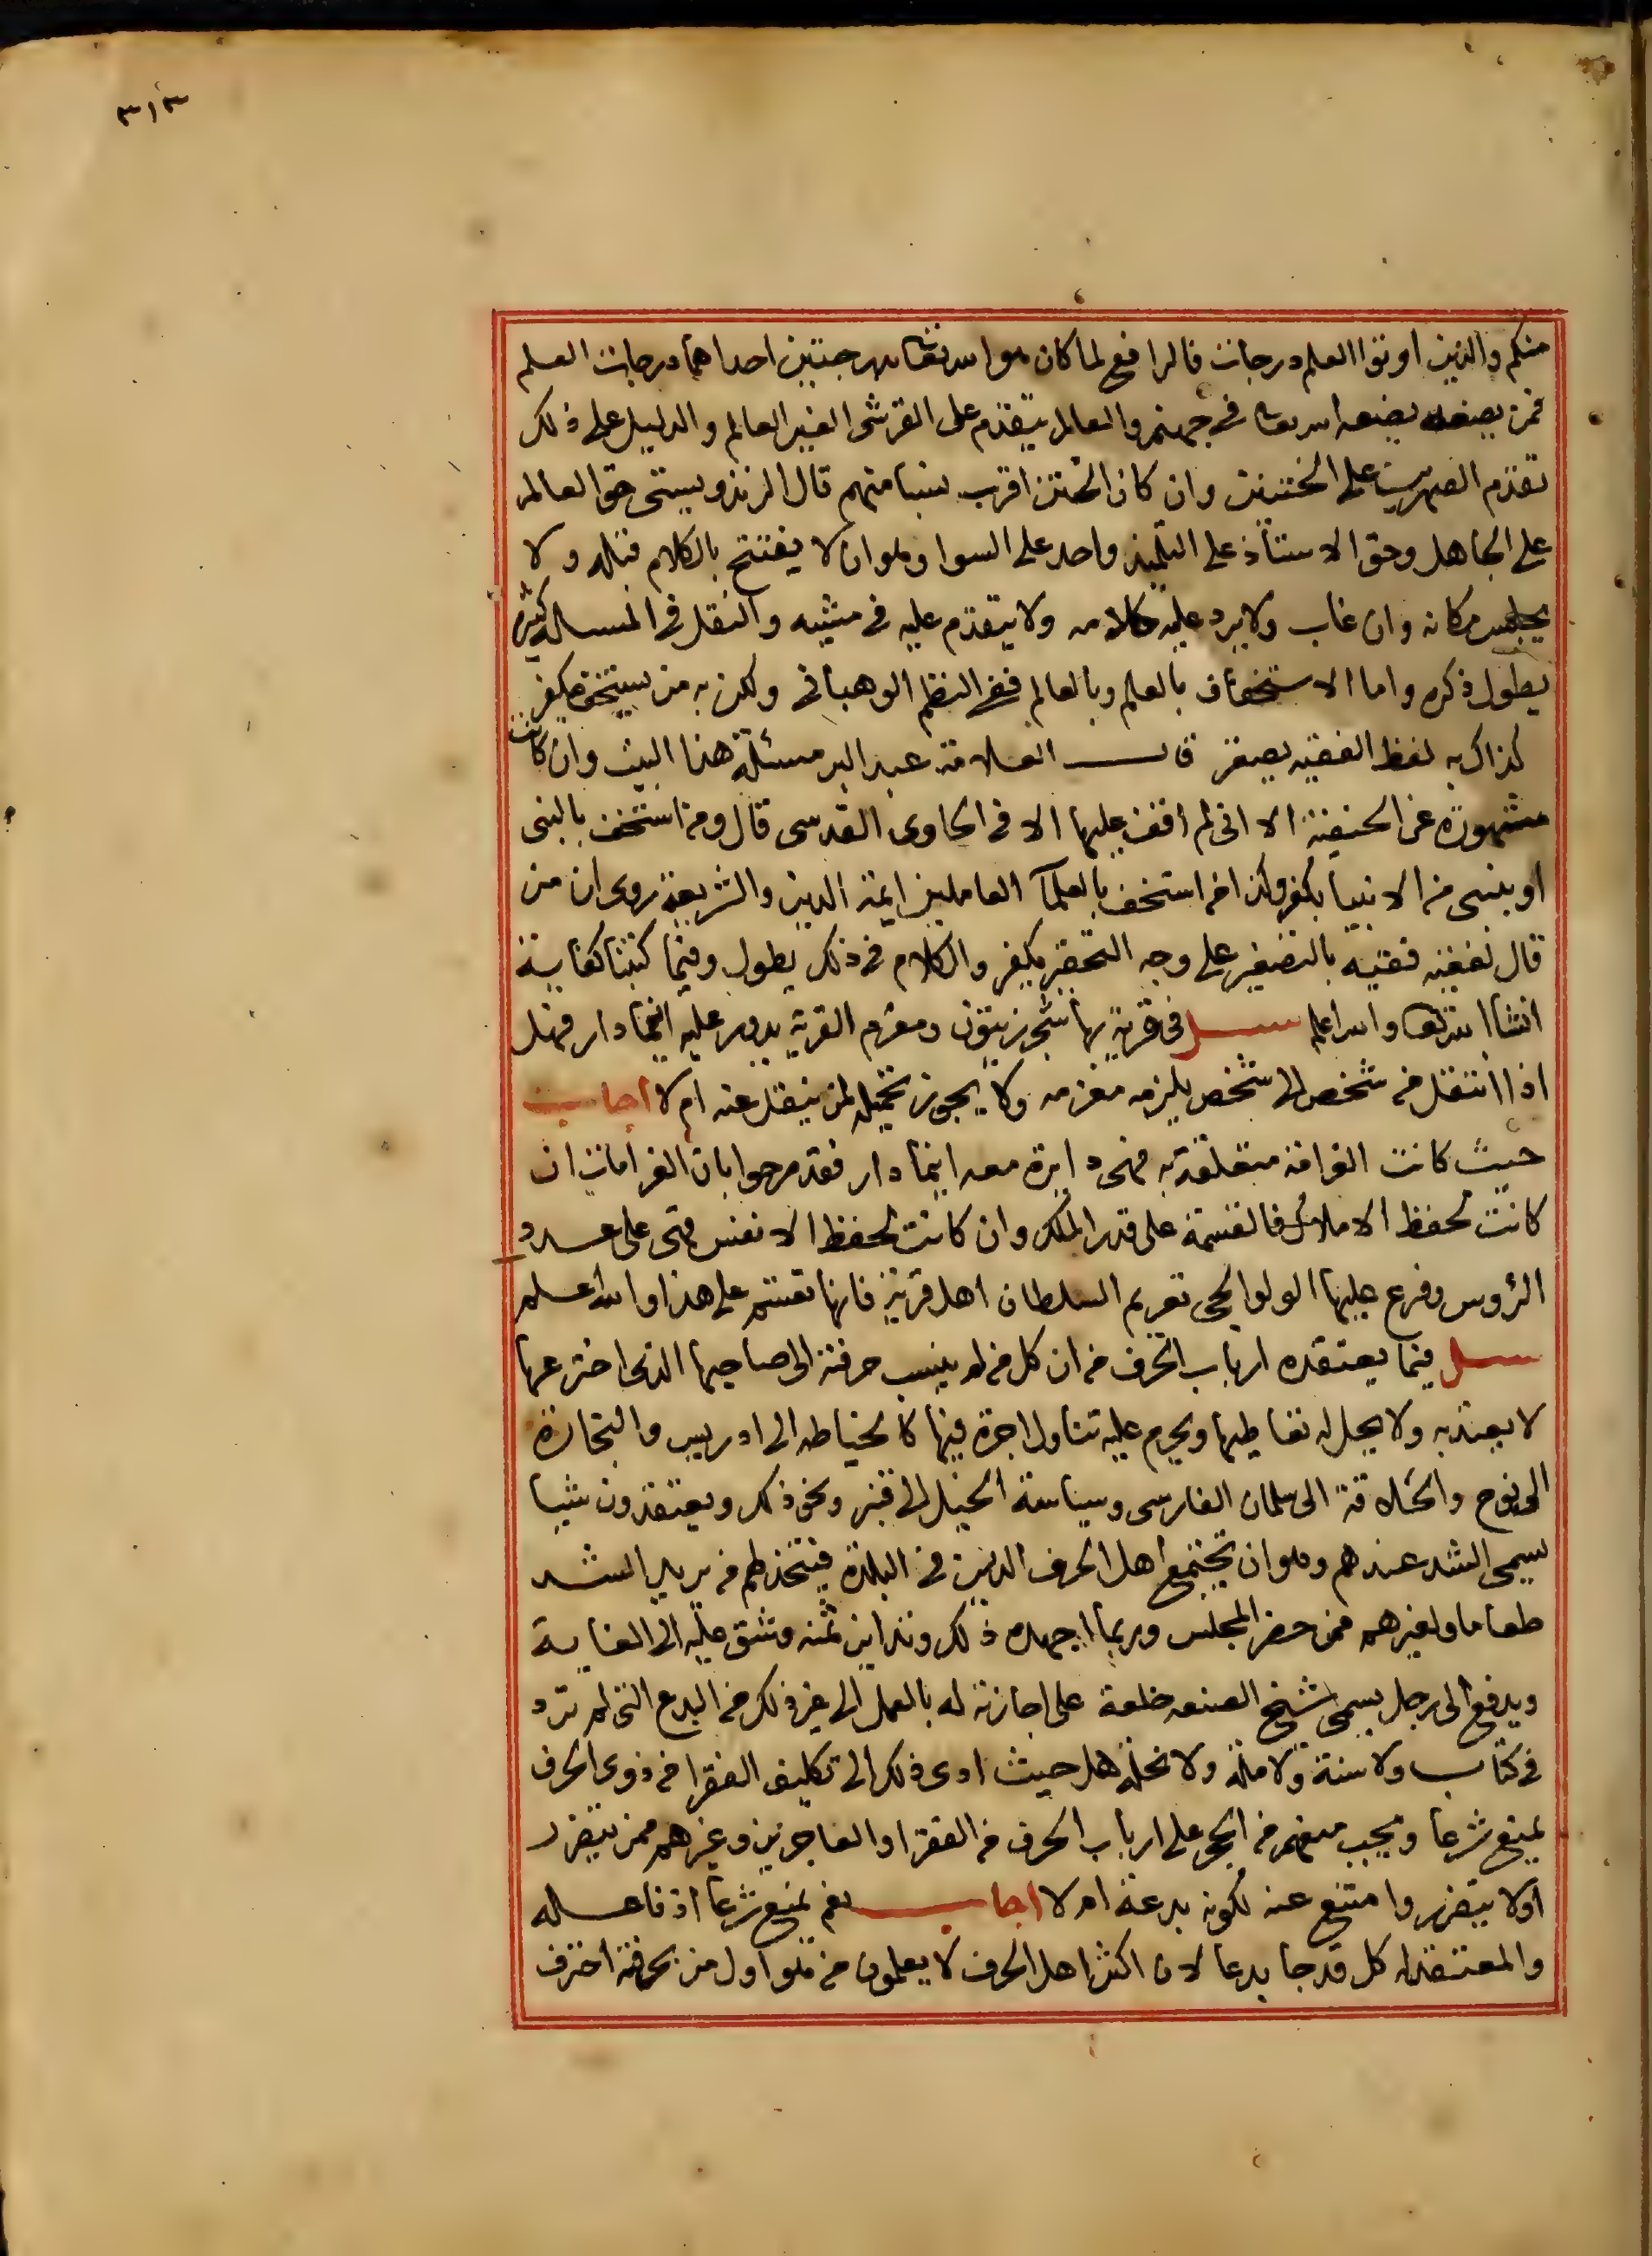 ٣١٣
منكم والذين اوتوا العلم درجات فالرافع لما كان هو الله تعالى احداهما درجات العلم
فمن يضعه يضعه الله تعالى في جهنم والعالم يتقدم على القرشى الغير العالم والدليل على ذلك
تقدم الصهرين على الختنين وان كان الختن اقرب نسبا منهم قال الزندويستى حق العالم
على الجاهل وحق الاستاذ على التلميذ واحد على السوا وهو ان لا يفتتح بالكلام قبله ولا
يجلس مكانه وان غاب ولا يرد عليه كلامه ولا يتقدم عليه في مشيه والنقل في المسالة كثير
يطول ذكره واما الاستخفاف بالعلم وبالعالم ففي النظم الوهباني ولكن به من يستخف مكفر
كذاك به لفظ الفقيه يصغر قال العلامة عبد البر مسئلة هذا البيت وان كانت
مشهورة عن الحنفية الا اني لم اقف عليها الا في الحاوى القدسى قال ومن استخف بالنبى
او بنبى من الانبيا يكفر وكذا من استخف بالعلمآ العاملين ايمة الدين والشريعة روى ان من
قال لفقيه فقيه بالتصغير على وجه التحقير يكفر والكلام في ذلك يطول وفيما كتبنا كفاية
انشا الله تعالى والله اعلم سئل في قرية بها شجر زيتون ومغرم القرية يدور عليه اينما دار فهل
اذا انتقل من شخص الى شخص يلزمه مغرمه ولا يجوز تحميله لمن ينتقل عنه ام لا اجاب
حيث كانت الغرامة متعلقة به فهى دايرة معه اينما دار فقد صرحوا بان الغرامات ان
كانت لحفظ الاملاك فالقسمة على قدر الملك وان كانت لحفظ الانفس فهى على عدد
الرؤس وفرع عليها الولوالجى تغريم السلطان اهل قرية فانها تقسم على هذا والله اعلم
سئل فيما يعتقده ارباب الحرف من ان كل من لم ينسب حرفته الى صاحبها الذى اخترعها
لا يعتد به ولا يحل له تعاطيها ويحرم عليه تناول اجرة فيها كالخياطه الى ادريس والنجارة
الى نوح والحلاقة الى سلمان الفارسى وسياسة الخيل الى قنبر ونحو ذلك ويعتقدون شيا
يسمى الشد عندهم وهو ان تجتمع اهل الحرف الذين في البلدة فيتخذ لهم من يريد الشد
طعاما ولغيرهم ممن حضر المجلس وربما اجهده ذلك وتداين ثمنه وشق عليه الى الغاية
ويدفع الى رجل يسمى شيخ الصنعه خلعة على اجازته له بالعمل الى غير ذلك من البدع التى لم ترد
في كتاب ولا سنة ولا ملة ولا نحلة هل حيث ادى ذلك الى تكليف الفقرا من ذوى الحرف
يمنع شرعا ويجب منعهم من الحجر على ارباب الحرف من الفقرا والعاجزين وغيرهم ممن يتضرر
اولا يتضرر وامتنع عنه لكونه بدعة ام لا اجاب نعم يمنع شرعا اذ فاعله
والمعتقد له كل قد جا بدعا لان اكثر اهل الحرف لا يعلمون من هو اول من بحرفته احترف